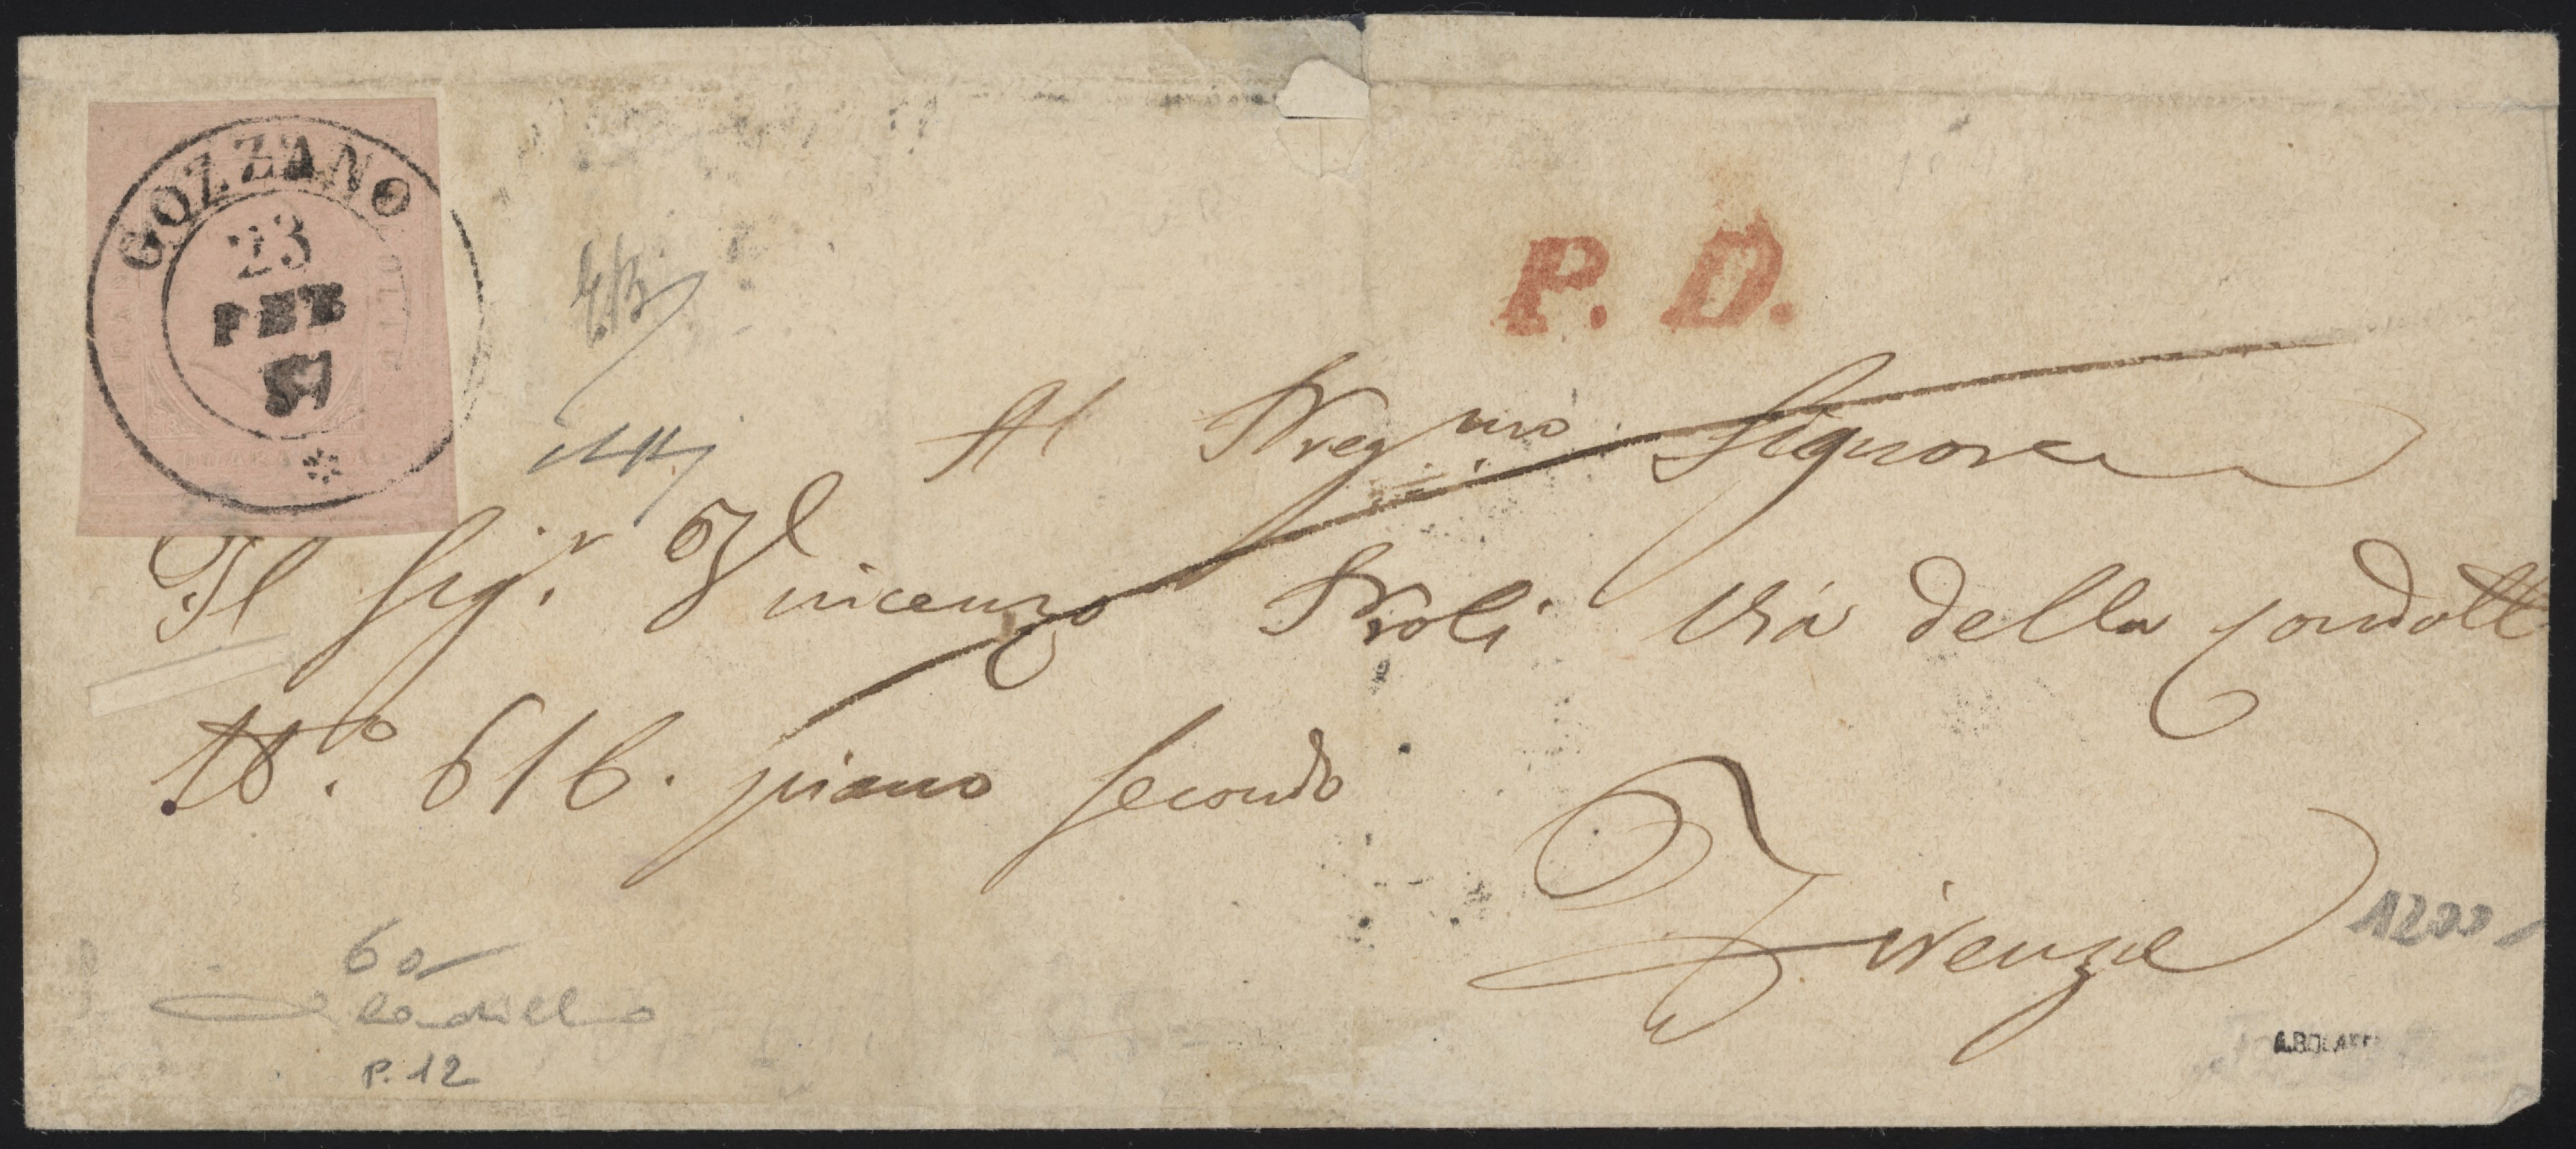 GOZZANO
23
FEB
57
P. D.
Al Preg.mo Signore
Il Sig.r Vincenzo Proli Via della Condotta
N.o 616. piano secondo
Firenze
1200-
60
P. 12
A.BOLAFFI